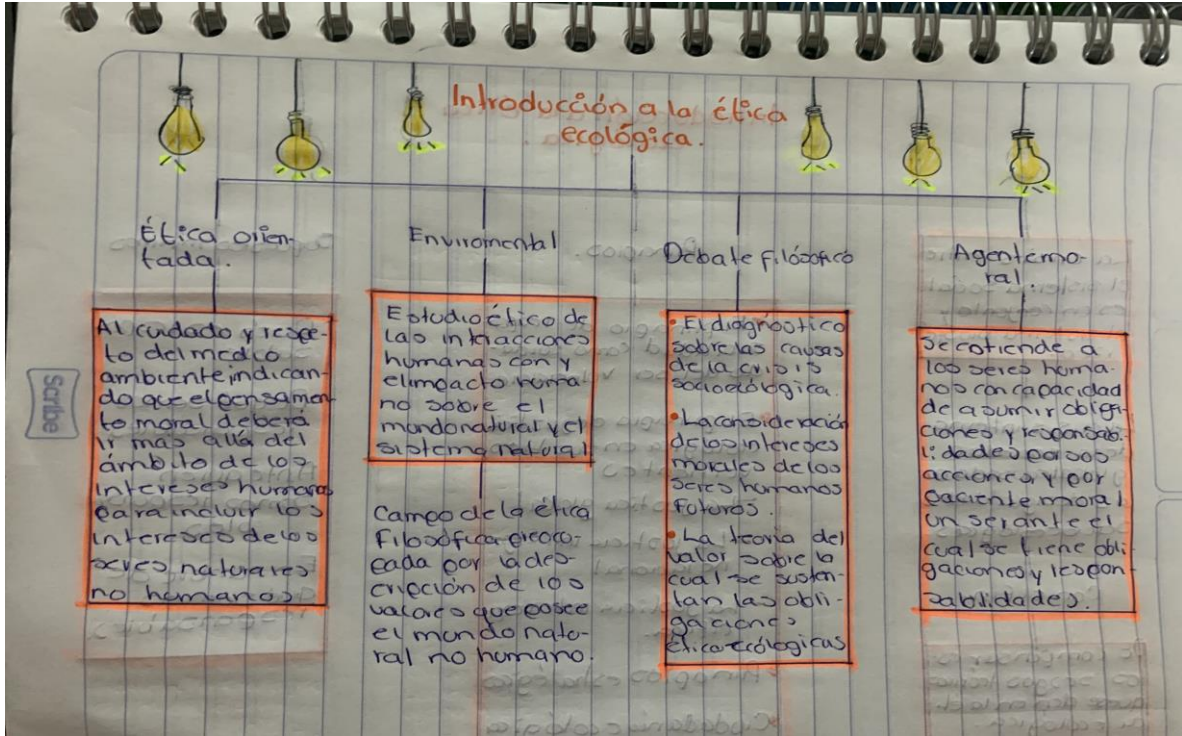 Introducción a la ética
ecológica.
Ética orien-
tada.
Al cuidado y respe-
to del medio
ambiente indican-
do que el pensamien
to moral deberá
ir mas allá del
ámbito de los
intereses humanos
para incluir los
intereses de los
seres naturares
no humanos
Enviromental
Estudio ético de
las interacciones
humanas con y
el impacto huma
no sobre el
mundo natural y el
sistema natural
Campo de la ética
filosófica preocu-
pada por la des-
cripción de los
valores que posee
el mundo natu-
ral no humano.
Debate filósofico
• El diagnóstico
sobre las causas
de la crisis
socioecológica.
• La consideración
de los intereses
morales de los
seres humanos
futuros.
• La teoría del
valor sobre la
cual se susten-
tan las obli-
gaciones
ético ecólogicas
Agente mo-
ral.
Se entiende a
los seres huma-
nos con capacidad
de asumir obliga-
ciones y responsabi-
lidades por sus
acciones y por
paciente moral
un ser ante el
cual se tiene obli
gaciones y respon
sablidades.
Scribe